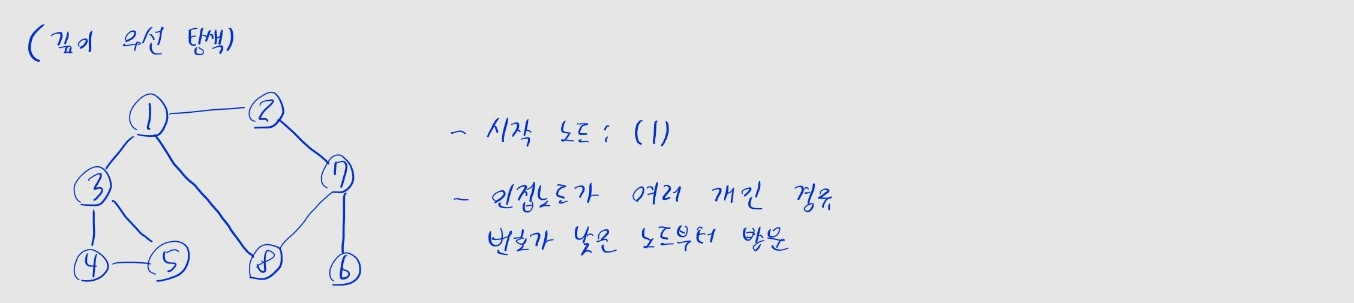 (깊이 우선 탐색)
1 2
3 7
4 5 8 6
- 시작 노드 : (1)
- 인접노드가 여러 개인 경우
번호가 낮은 노드부터 방문